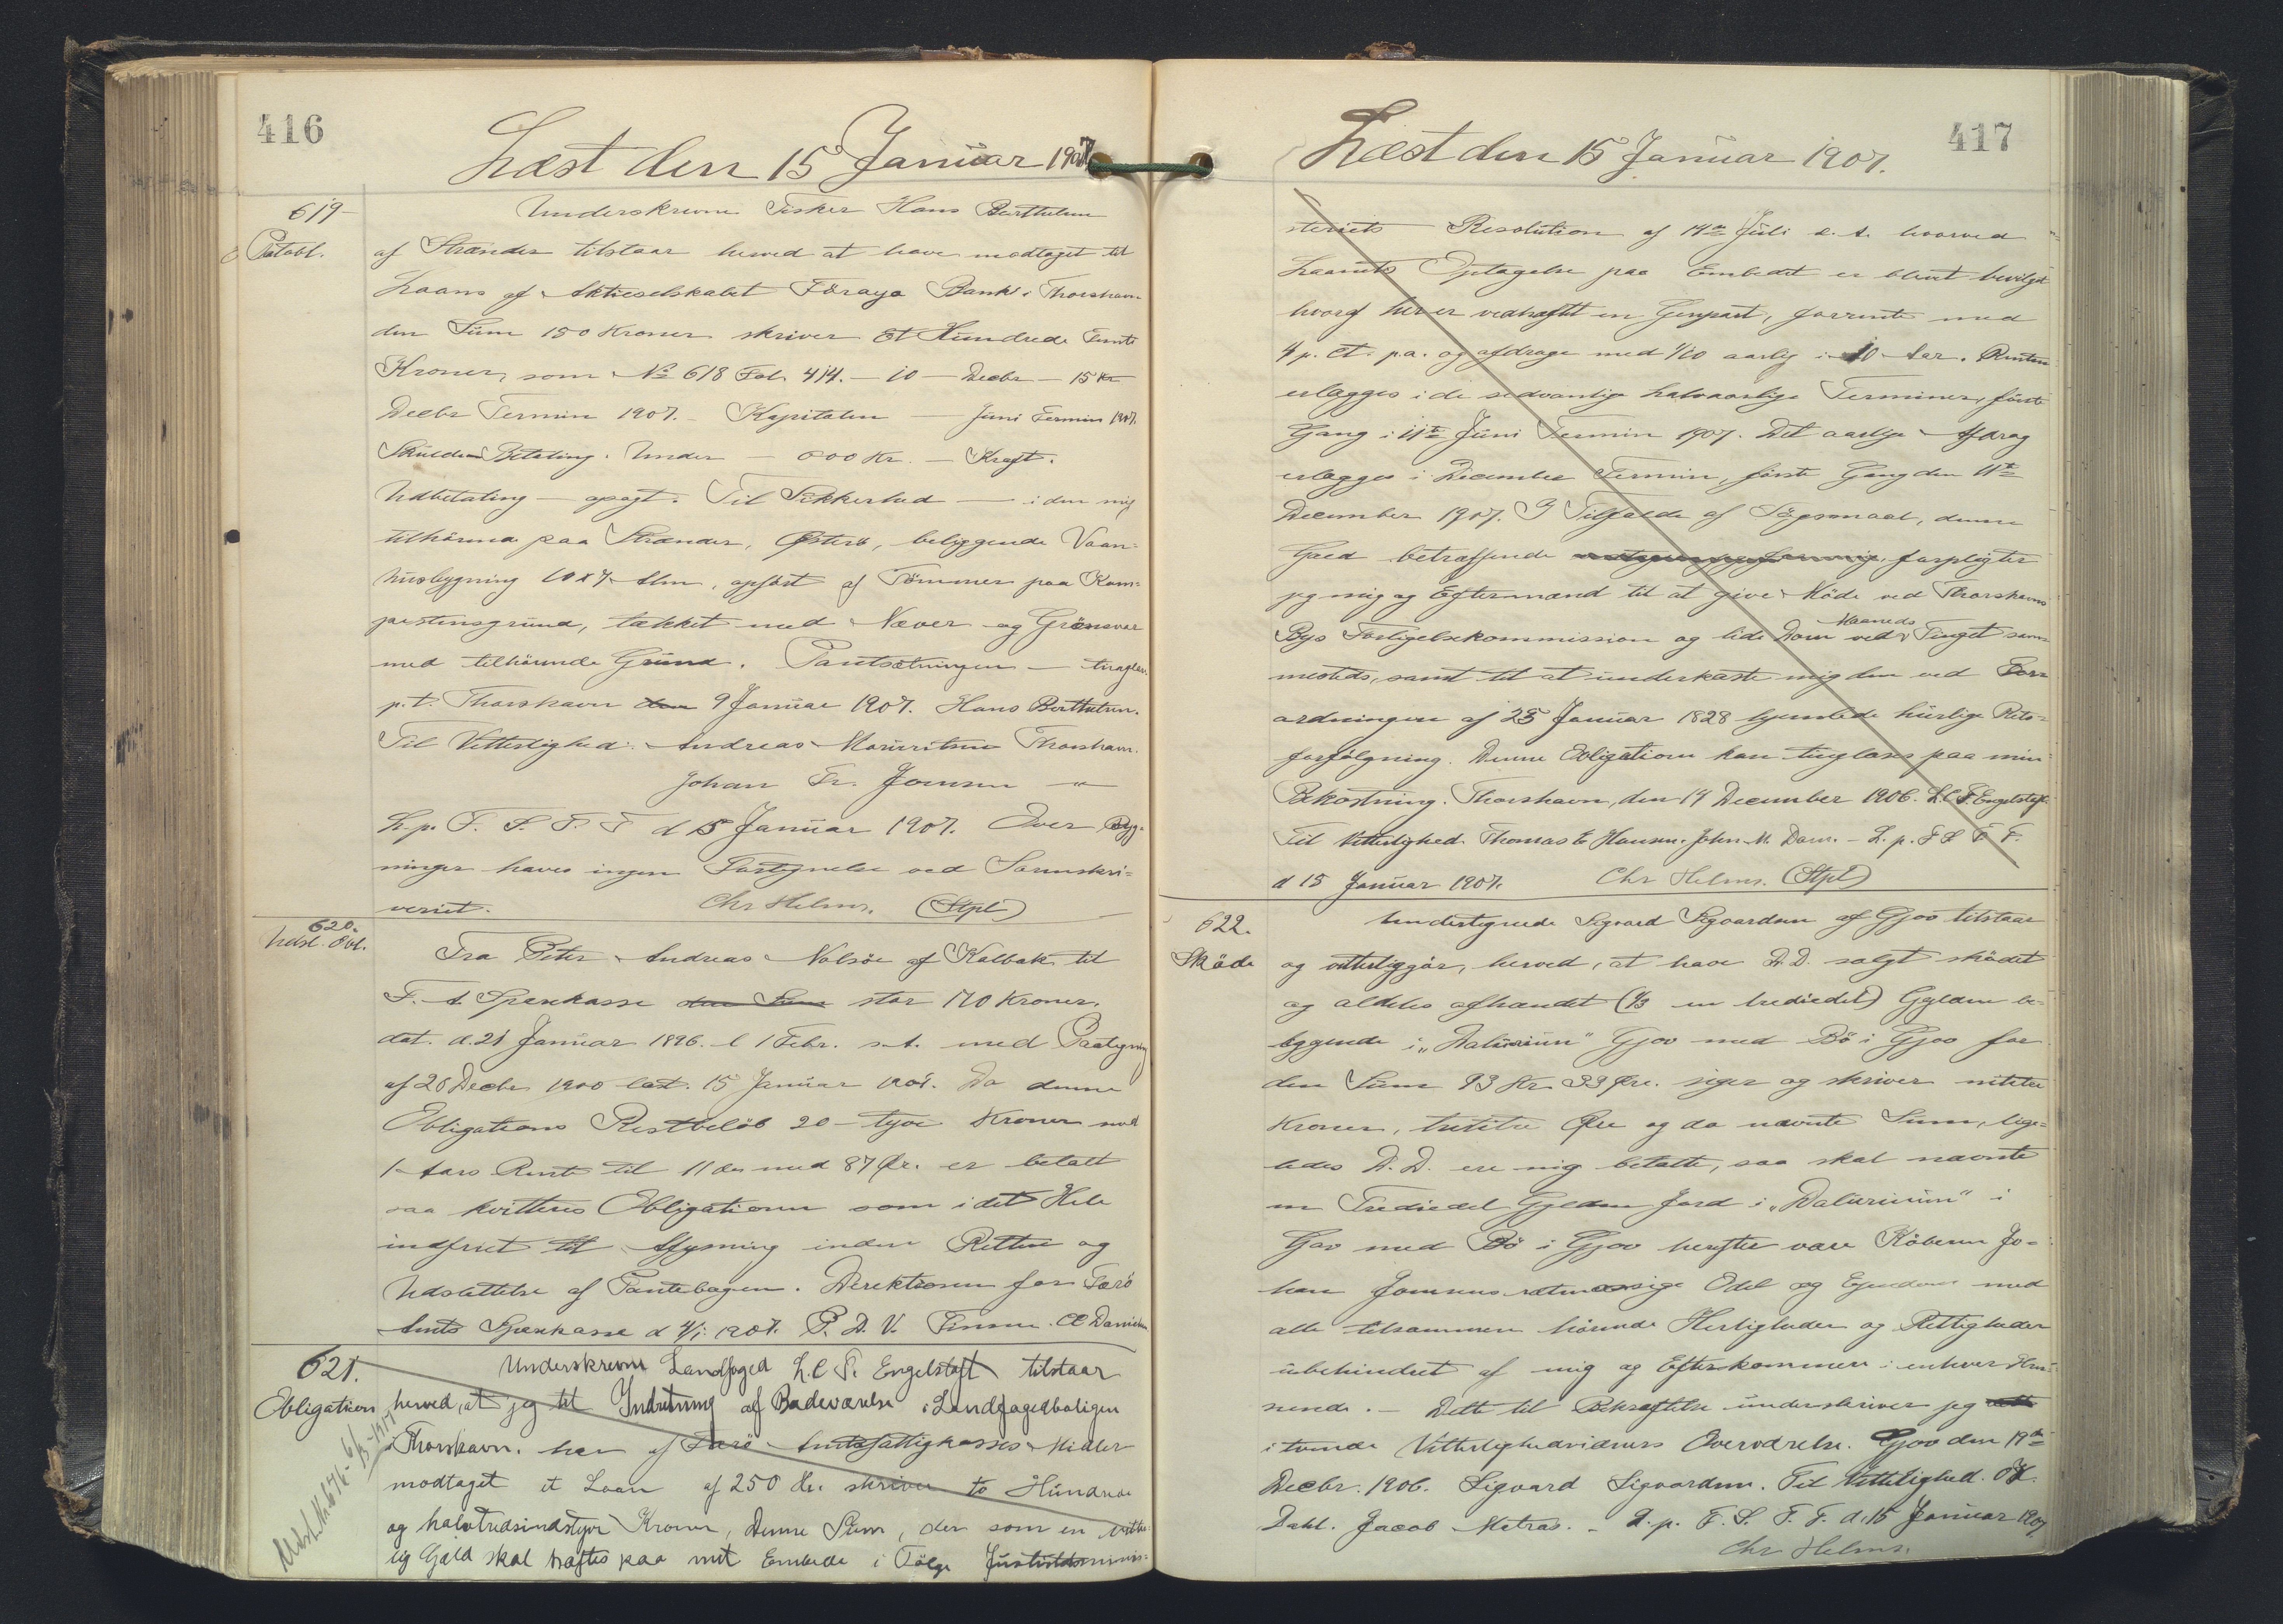 416
Læst den 15 Januar 1907
619
Pantobl.
Underskrevne Fisker Hans Berthelsen
af Strænder tilstaar herved at have modtaget til
Laans af Aktieselskabet Föroya Bank i Thorshavn
den Sum 150 Kroner skriver Et Hundrede Femti
Kroner, som No 618 Fol. 414. — 10 — Decbr — 15 Kr
Decbr Termin 1907. — Kapitalen — Juni Termin 1907.
Skulden Betaling. Under — 000 Kr. — Kraft.
Udbetaling — opsagt. Til Sikkerhed — i den mig
tilhörende paa Strænder, Østerö, beliggende Vaan-
husbygning 10 x 7 Alen, opfört af Tömmer paa Kam-
pestensgrund, tækket med Næver og Grönsvær
med tilhörende Grund. Pantsætningen — tinglæs.
p.t. Thorshavn den 9 Januar 1907. Hans Berthelsen.
Til Vitterlighed: Andreas Mouritsen Thorshavn.
Johan Fr. Joensen — "
L. p. F. S. T. F d 15 Januar 1907. Over Byg-
ninger haves ingen Fortegnelse ved Sorenskri-
veriet. Chr Helms. (Stpl)
620.
Udsl. Obl.
Fra Peter Andreas Nolsöe af Kalbak til
F. A. Sparekasse den Sum stor 170 Kroner,
dat. d. 21 Januar 1896. l 1 Febr. s. A. med Paategning
af 28 Decbr 1900 læst. 15 Januar 1901. Da denne
Obligations Restbelöb 20 — tyve Kroner med
1 Aars Rente til 11 des med 87 Øre. er betalt
saa kvitteres Obligationen som i det Hele
indfriet til Aflysning inden Retten og
Udslettelse af Pantebogen. Direktionen for Færö
Amts Sparekasse d 4/1 1907. P. D. V. Finsen. CC Danielsen
621.
Obligation
Underskrevne Landfoged L. C. F. Engelstoft tilstaar
herved, at jeg til Indretning af Badeværelse i Landfogedboligen
i Thorshavn. har af Færö Amtsfattigkasses Midler
modtaget et Laan af 250 Kr. skriver to Hundrede
og halvtredsindstyve Kroner, denne Sum, der som en vitter-
lig Gæld skal hæftes paa mit Embede i Følge Justitsminis-
417
Læst den 15 Januar 1907.
steriets Resolution af 14de Juli d. A. hvorved
Laanets Optagelse paa Embedet er blevet bevilget
hvoraf her er vedhæftet en Genpart, forrente med
4 p. Ct. p.a. og afdrage med 1/10 aarlig i 10 Aar. Renten
erlægges i de sedvanlige halvaarlige Terminer, förste
Gang i 11te Juni Termin 1907. Det aarlige Afdrag
erlægges i December Termin, förste Gang den 11te
December 1907. I Tilfælde af Sögsmaal, denne
Gæld betræffende forpligter
jeg mig og Eftermænd til at give Möde ved Thorshavns
Bys Forligelseskommission og lide Dom ved Maaneds Tinget sam-
mesteds, samt til at underkaste mig den ved For-
ordningen af 25 Januar 1828 hjemlede hurlige Rets-
forfölgning. Denne Obligation kan tinglæses paa min
Bekostning. Thorshavn, den 14 December 1906. L. C. F. Engelstoft
Til Vitterlighed. Thomas E Hansen. John M. Dam. — L. p. F S T F.
d 15 Januar 1907. Chr Helms. (Stpl)
622.
Sköde
Undertegnede Sigvard Sigvardsen af Gjov tilstaar
og vitterliggör, herved, at have D. D. solgt sködet
og aldeles afhændet (1/3 en trediedel) Gylden be-
liggende i "Dalurinum" Gjov med Bö i Gjov for
den Sum 93 Kr. 33 Øre. siger og skriver nititre
Kroner, tretitre Øre og da nævnte Sum, lige-
ledes D. D. ere mig betalte, saa skal nævnte
en Trediedel Gylden Jord i "Dalurinum" i
Gjov med Bö i Gjov herefter være Köberen Jo-
han Joensens retmæssige Odel og Ejendom med
alle tilsammen hörende Herligheder og Rettigheder
ubehindret af mig og Efterkommere i enhver Hen-
seende. — Dette til Bekræftelse underskriver jeg
i tvende Vitterlighedsvidners Overværelse. Gjov den 19de
Decbr. 1906. Sigvard Sigvardsen. Til Vitterlighed. O. J.
Dahl. Jacob Matras. — L. p. F. S. T. F. d. 15 Januar 1907
Chr Helms.